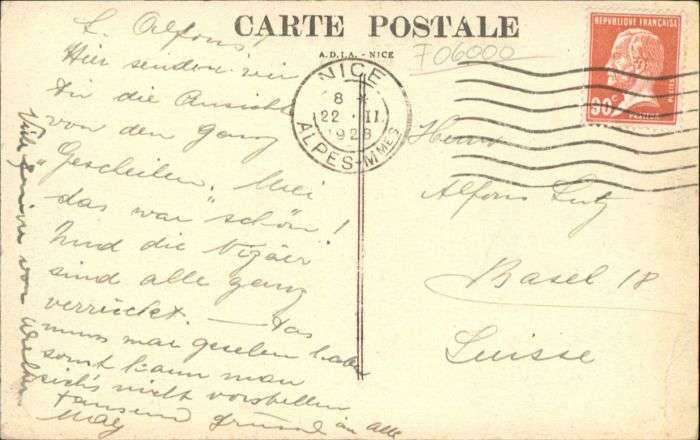 CARTE POSTALE
A.D.I.A. - NICE
F06000
RÉPUBLIQUE FRANÇAISE
90c
POSTES
NICE
8 *
22 · II.
1928
ALPES-MMES
L. Alfons!
Hier senden wir
Dir die Ansicht
von den ganz
"Gescheiten. Mei
das war "schön"!
Und die Nizäer
sind alle ganz
verrückt. — Das
muss man gesehen haben
sonst kann man
sich's nicht vorstellen
tausend Grüsse an alle
May
Viele Grüsse von
Herrn
Alfons Lutz
Basel 18
Suisse